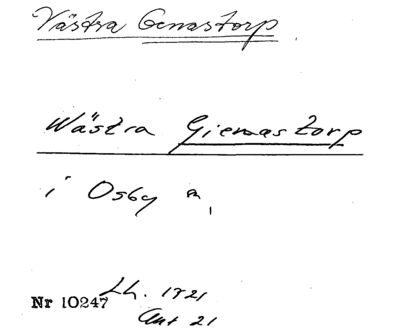 Västra Genastorp.
Wästra Gienastorp
i Osby
Lh. 1821
Nr 10247
Ant 21